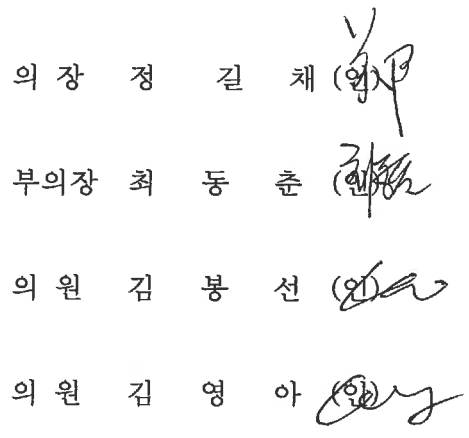 의 장 정 길 채 (인)
부의장 최 동 춘 (인)
의 원 김 봉 선 (인)
의 원 김 영 아 (인)